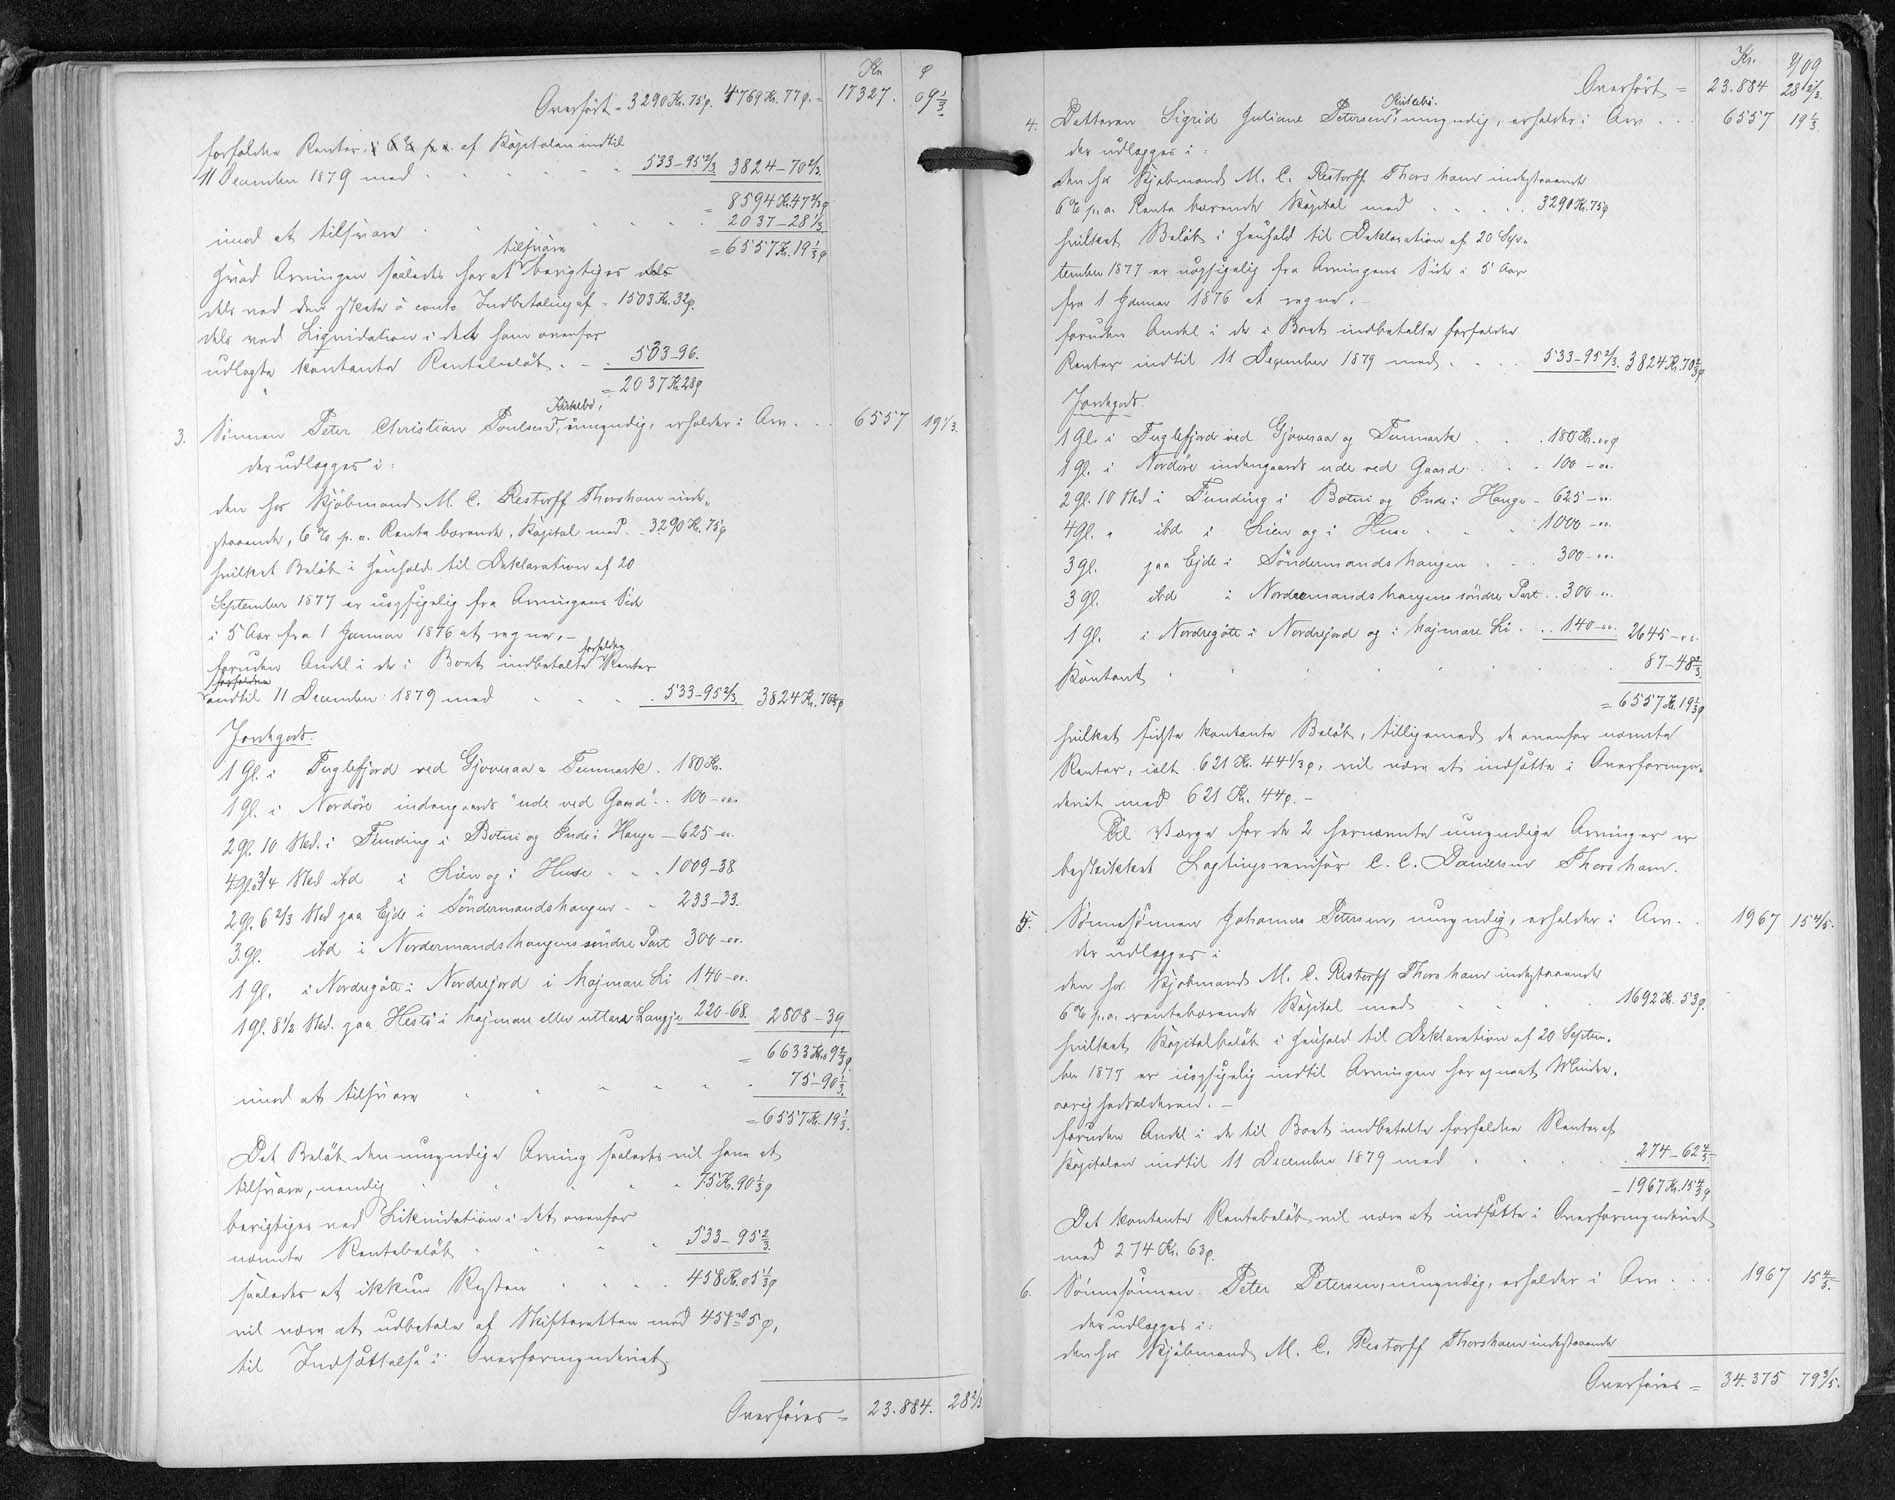 Kr. ø
Overført = 3290 Kr. 75 ø. 4769 Kr. 77 ø. = 17327. 09 1/3
forfaldne Renter, 6% p.a. af Kapitalen indtil
11 December 1879 med . . . . . 533-95 2/3 3824-70 2/3
= 8594 Kr. 47 2/3 ø
imod at tilsvare . . . . . . 2037-28 1/3
= 6557 Kr. 19 1/3 ø
hvad Arvingen saaledes har at tilsvare berigtiges
dels ved den skete à conto Indbetaling af - 1503 Kr. 32 ø.
dels ved Liqvidation i det ham ovenfor
udlagte kontante Rentebeløb . . . 533-96.
= 2037 Kr. 28 ø
3. Sønnen Peter Christian Poulsen, Kirkebø, umyndig, erholder i Arv . . 6557 19 1/3.
der udlægges i:
den hos Kjøbmand M. C. Restorff Thorshavn inde-
staaende, 6% p. a. Rente bærende, Kapital med . . 3290 Kr. 75 ø
hvilket Beløb i Henhold til Deklaration af 20
September 1877 er uopsigelig fra Arvingens Side
i 5 Aar fra 1 Januar 1876 at regne, -
foruden Andel i de i Boet indbetalte forfaldne Renter
forfaldne
indtil 11 December 1879 med . . . . 533-95 2/3. 3824 Kr. 70 2/3 ø
Jordegods.
1 Gl. i Fuglefjord ved Gjoveraa o Funmark . 180 Kr.
1 Gl. i Nordøre indengaards "ude ved Gaard" . . 100-oo.
2 Gl. 10 Skd. i Funding i Botni og Inde i Hauge - 625-oo.
4 Gl. 3/4 Skd ibd i Lien og i Huse . . . 1009-38
2 Gl. 6 2/3 Skd paa Ejde i Söndermandshaugen . . 233-33.
3. Gl. ibd i Nordermandshaugens söndre Part 300-oo.
1 Gl. i Nordregöte i Nordrejord i högmare Li 140-oo.
1 Gl. 8 1/2 Skd. paa Hestö i högmare eller uttara Langje 220-68. 2808-39
= 6633 Kr. 9 2/3 ø.
imod at tilsvare . . . . . . 75-90 1/3.
= 6557 Kr. 19 1/3.
Det Beløb den umyndige Arving saaledes vil have at
tilsvare, nemlig . . . . . 75 Kr. 90 1/3 ø
berigtiges ved Likvidation i det ovenfor
nævnte Rentebeløb . . . . 533-95 2/3.
saaledes at ikkun Resten . . . . 458 Kr. 05 1/3 ø
vil være at udbetale af Skifteretten med 458 Kr 5 ø,
til Indsættelse i Overformynderiet
Overføres = 23.884. 28 2/3
Kr. ø/09
Overført = 23.884 28 2/3.
4. Datteren Sigrid Juliane Petersen, Kirkebø. umyndig, erholder i Arv . . . 6557 19 1/3.
der udlægges i:
den hos Kjøbmand M. C. Restorff Thorshavn indestaaende
6% p.a. Rente bærende Kapital med . . . . . 3290 Kr. 75 ø
hvilket Beløb i Henhold til Deklaration af 20 Sep-
tember 1877 er uopsigelig fra Arvingens Side i 5 Aar
fra 1 Januar 1876 at regne. -
foruden Andel i de i Boet indbetalte forfaldne
Renter indtil 11 December 1879 med . . . . 533-95 2/3. 3824 Kr. 70 2/3 ø
Jordegods.
1 Gl. i Fuglefjord ved Gjoveraa og Funmark . . . 180 Kr. oo ø
1 Gl. i Nordøre indengaards ude ved Gaard . . . 100-oo.
2 Gl. 10 Skd i Funding i Botni og Inde i Hauge - 625-oo.
4 Gl. " ibd i Lien og i Huse . . . . 1000-oo.
3 Gl. paa Ejde i Söndermandshaugen . . . 300-oo.
3 Gl. ibd i Nordermandshaugens söndre Part . . 300-oo.
1 Gl. i Nordregöte i Nordrejord og i högmare Li . . . 140-oo. 2645-oo.
Kontant . . . . . . . . 87-48 2/3.
= 6557 Kr. 19 1/3 ø
hvilket sidste kontante Beløb, tilligemed de ovenfor nævnte
Renter, ialt 621 Kr. 44 1/3 ø, vil være at indsætte i Overformyn-
deriet med 621 Kr. 44 ø. -
Til Værge for de 2 fornævnte umyndige Arvinger er
beskikket Lagtingsrevisor C. C. Danielsen Thorshavn.
5. Sønnesønnen Johannes Petersen, umyndig, erholder i Arv . . 1967 15 4/5.
der udlægges i
den hos Kjøbmand M. C. Restorff Thorshavn indestaaende
6% p.a. rentebærende Kapital med . . . . . 1692 Kr. 53 ø.
hvilket Kapitalbeløb i Henhold til Deklaration af 20 Septem-
ber 1877 er uopsigelig indtil Arvingen har opnaaet Minder-
aarighedsalderen. -
foruden Andel i de til Boet indbetalte forfaldne Renter af
Kapitalen indtil 11 December 1879 med . . . . 274-62 4/5
= 1967 Kr. 15 4/5 ø
Det kontante Rentebeløb vil være at indsætte i Overformynderiet
med 274 Kr. 63 ø.
6. Sønnesønnen Peter Petersen, umyndig, erholder i Arv . . . 1967 15 4/5.
der udlægges i:
den hos Kjøbmand M. C. Restorff Thorshavn indestaaende
Overføres = 34.375 79 3/5.